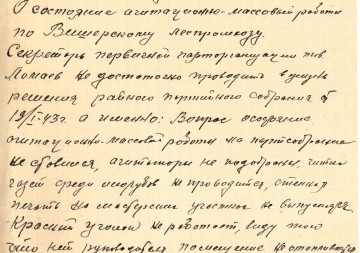 О состояние агитационо-массовой работы
по Вишерскому леспромхозу.
Секретарь первичной парторганизации тов
Ломаев не достоточно проводит в жизнь
решения районого партийного собрания от
19/I-43г. а именно: Вопрос о состояние
агитационо-массовой работы на партсобрание
не ставился, агитаторы не подобраны, читка
газет среди лесорубов не проводится, стенная
печать на мастерских участков не выпускается
Красный уголок не работает, виду того
что нет руководителя помещение не отопливается